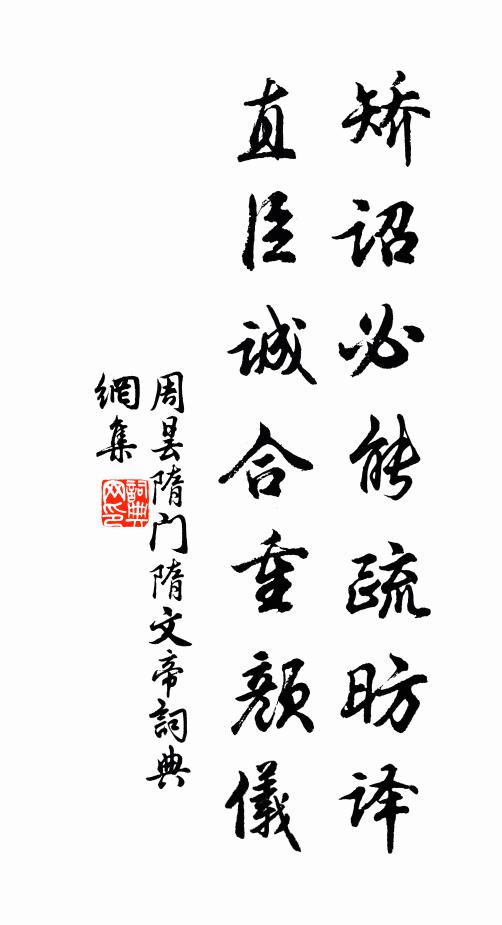 矫诏必能疏昉译
直臣诚合重颜儀
周昙隋门隋文帝詞典
網集
詞典
网印